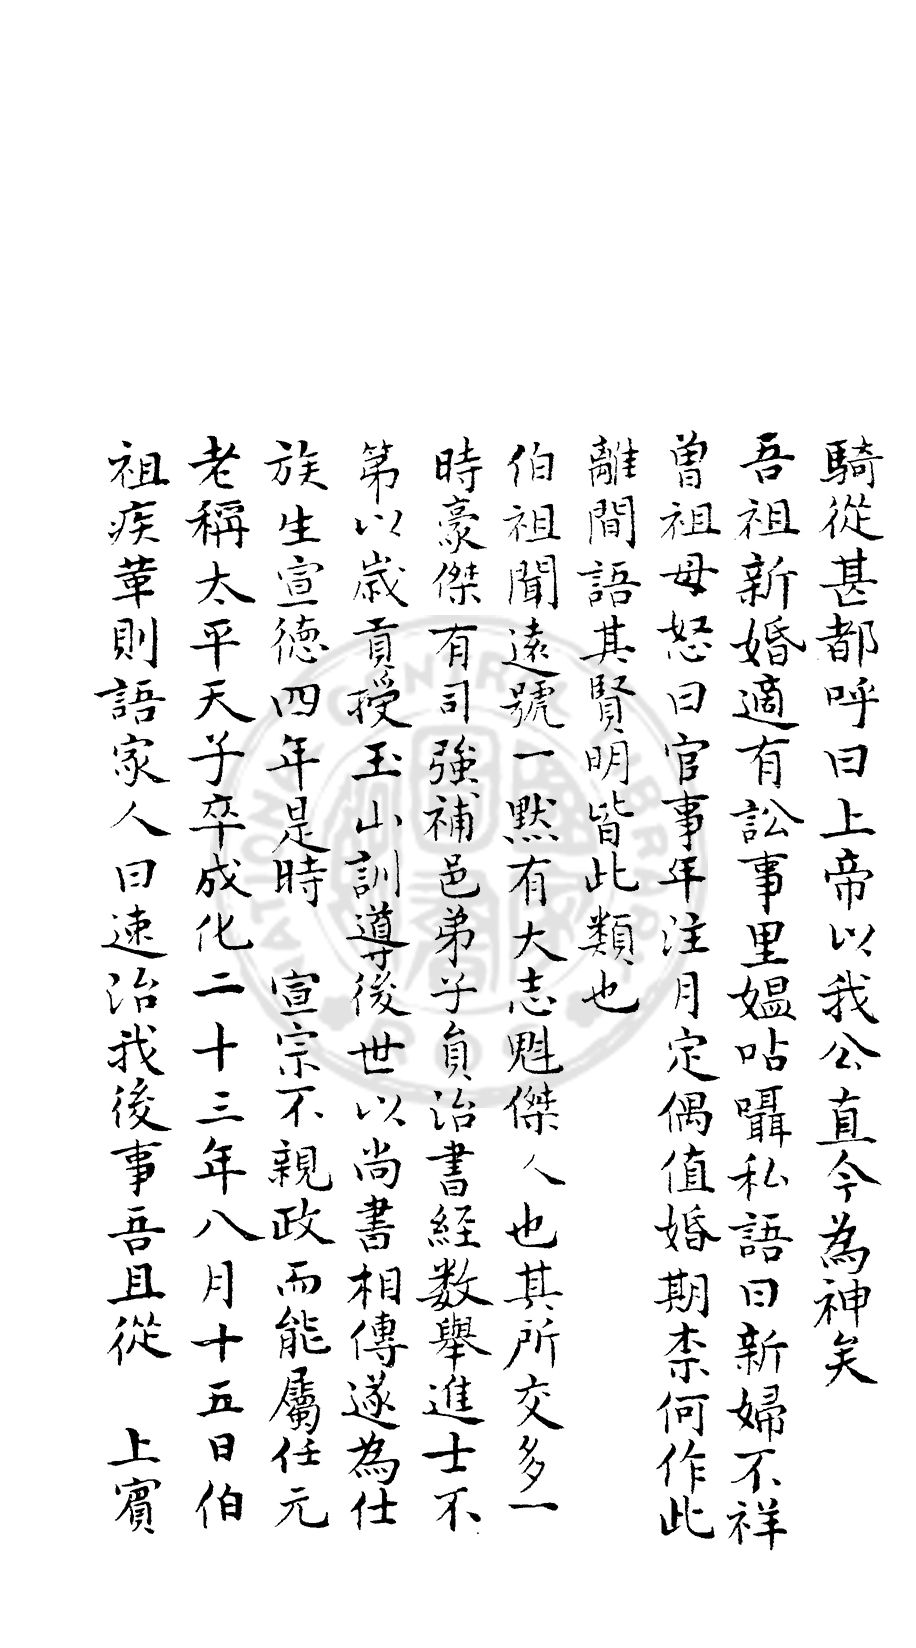 騎從甚都呼曰上帝以我公直今為神矣
吾祖新婚適有訟事里媼呫囁私語曰新婦不祥
曾祖母怒曰官事年注月定偶值婚期柰何作此
離間語其賢明皆此類也
伯祖聞遠號一默有大志魁傑人也其所交多一
時豪傑有司強補邑弟子員治書經數舉進士不
第以歲貢授玉山訓導後世以尚書相傳遂為仕
族生宣德四年是時　宣宗不親政而能屬任元
老稱太平天子卒成化二十三年八月十五日伯
祖疾革則語家人曰速治我後事吾且從　上賓
NATIONAL CENTRAL LIBRARY